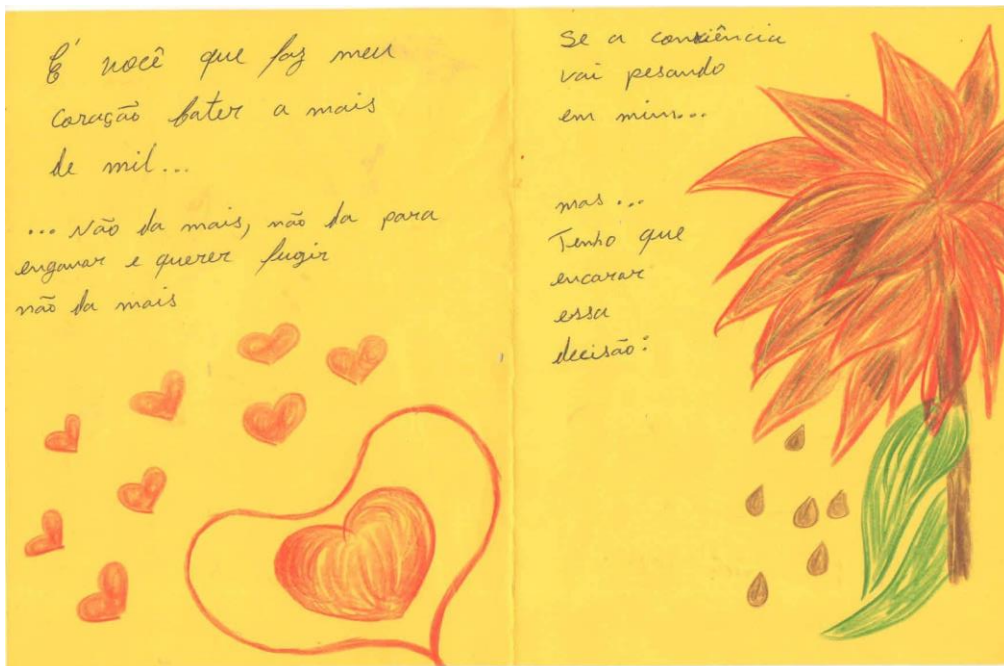 É você que faz meu
coração bater a mais
de mil...
... Não da mais, não da para
enganar e querer fugir
não da mais
Se a consiência
vai pesando
em mim...
mas...
Tenho que
encarar
essa
decisão: